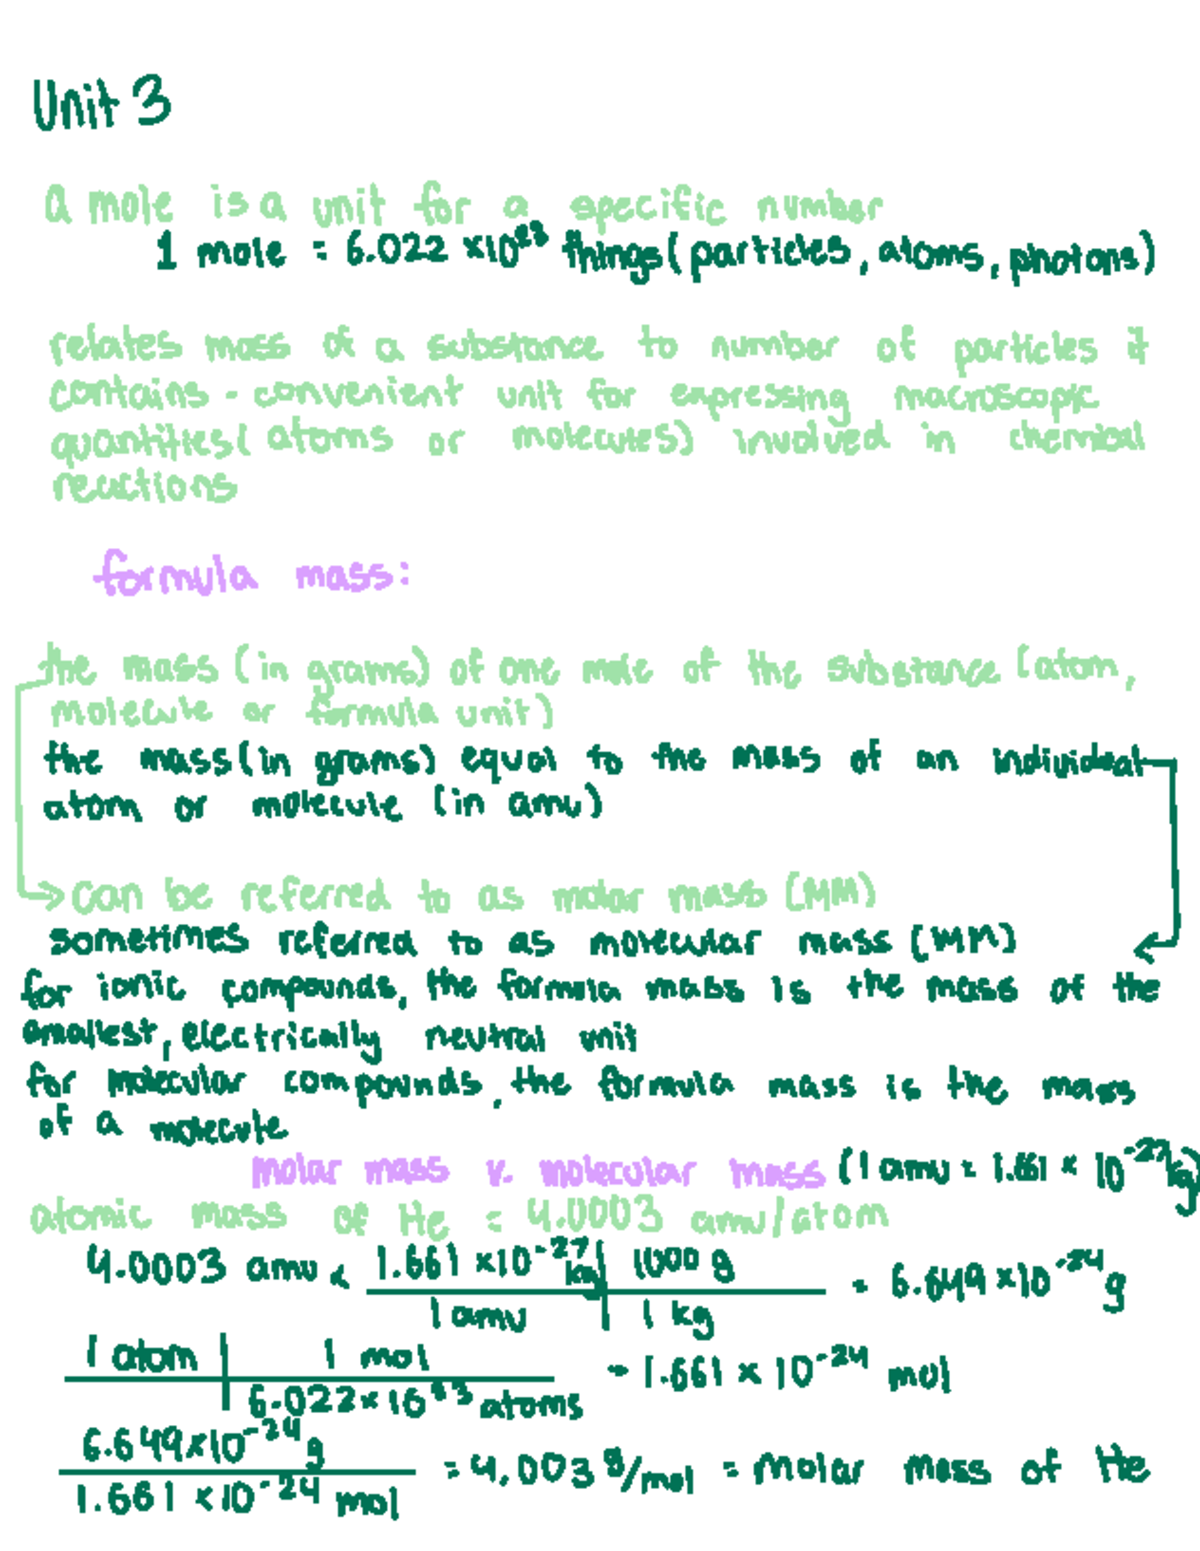 Unit 3
a mole is a unit for a specific number
1 mole = 6.022 ×10²³ things (particles, atoms, photons)
relates mass of a substance to number of particles it
contains - convenient unit for expressing macroscopic
quantities( atoms or molecules) involved in chemical
reactions
formula mass:
the mass (in grams) of one mole of the substance (atom,
molecule or formula unit)
the mass (in grams) equal to the mass of an individual
atom or molecule (in amu)
→ can be referred to as molar mass (MM)
sometimes referred to as molecular mass (MM)
for ionic compounds, the formula mass is the mass of the
smallest, electrically neutral unit
for molecular compounds, the formula mass is the mass
of a molecule
molar mass v. molecular mass (1 amu = 1.661 × 10⁻²⁷ kg)
atomic mass of He = 4.0003 amu/atom
4.0003 amu × 1.661 ×10⁻²⁷ kg | 1000 g = 6.649 ×10⁻²⁴ g
1 amu | 1 kg
1 atom | 1 mol = 1.661 × 10⁻²⁴ mol
6.022 × 10²³ atoms
6.649×10⁻²⁴ g = 4.003 g/mol = molar mass of He
1.661 × 10⁻²⁴ mol